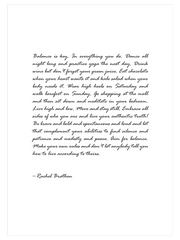 Balance is key. In everything you do. Dance all
night long and practice yoga the next day. Drink
wine but don't forget your green juice. Eat chocolate
when your heart wants it and kale salad when your
body needs it. Wear high heels on Saturday and
walk barefoot on Sunday. Go shopping at the mall
and then sit down and meditate in your bedroom.
Live high and low. Move and stay still. Embrace all
sides of who you are and live your authentic truth!
Be brave and bold and spontaneous and loud and let
that complement your abilities to find silence and
patience and modesty and peace. Aim for balance.
Make your own rules and don't let anybody tell you
how to live according to theirs.
– Rachel Brathen